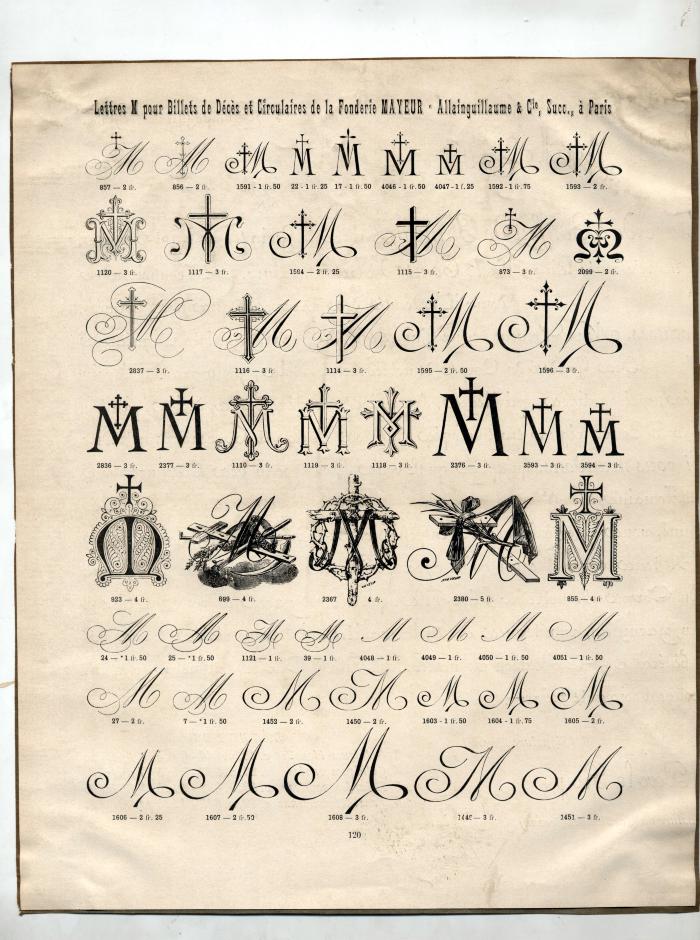 Lettres M pour Billets de Décès et Circulaires de la Fonderie MAYEUR - Allainguillaume & Cie, Succ., à Paris
857 — 2 fr. 856 — 2 fr. 1591 - 1 fr. 50 22 - 1 fr. 25 17 - 1 fr. 50 4046 - 1 fr. 50 4047 - 1 fr. 25 1592 - 1 fr. 75 1593 — 2 fr.
1120 — 3 fr. 1117 — 3 fr. 1594 — 2 fr. 25 1115 — 3 fr. 873 — 3 fr. 2099 — 2 fr.
2837 — 3 fr. 1116 — 3 fr. 1114 — 3 fr. 1595 — 2 fr. 50 1596 — 3 fr.
2836 — 3 fr. 2377 — 3 fr. 1110 — 3 fr. 1119 — 3 fr. 1118 — 3 fr. 2376 — 3 fr. 3593 — 3 fr. 3594 — 3 fr.
923 — 4 fr. 699 — 4 fr. 2367 4 fr. 2380 — 5 fr. 855 — 4 fr.
24 — *1 fr. 50 25 — *1 fr. 50 1121 — 1 fr. 39 — 1 fr. 4048 — 1 fr. 4049 — 1 fr. 4050 — 1 fr. 50 4051 — 1 fr. 50
27 — 2 fr. 7 — *1 fr. 50 1452 — 2 fr. 1450 — 2 fr. 1603 - 1 fr. 50 1604 - 1 fr. 75 1605 — 2 fr.
1606 — 2 fr. 25 1607 — 2 fr. 50 1608 — 3 fr. — 3 fr. 1451 — 3 fr.
120